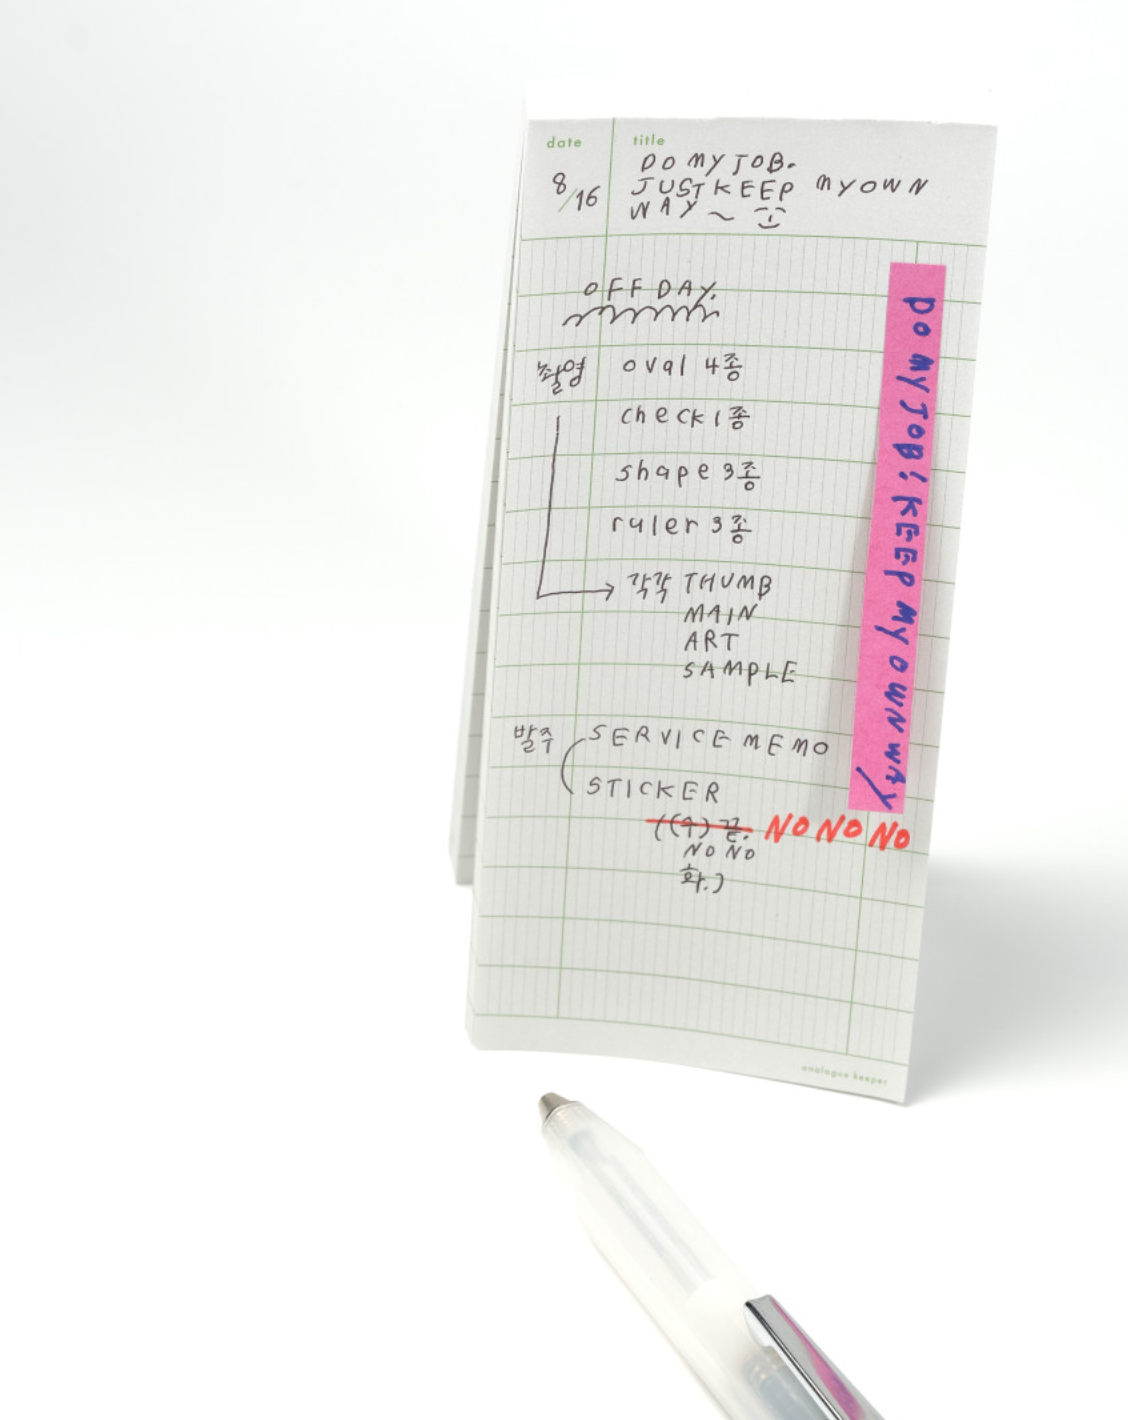 date
title
8/16
DO MY JOB.
JUST KEEP MY OWN
WAY ~
OFF DAY.
촬영 oval 4종
check 1종
shape 3종
ruler 3종
각각 THUMB
MAIN
ART
SAMPLE
발주 SERVICE MEMO
STICKER
((수) 끝. NO NO NO
NO NO
화.)
DO MY JOB! KEEP MY OWN WAY
analogue keeper